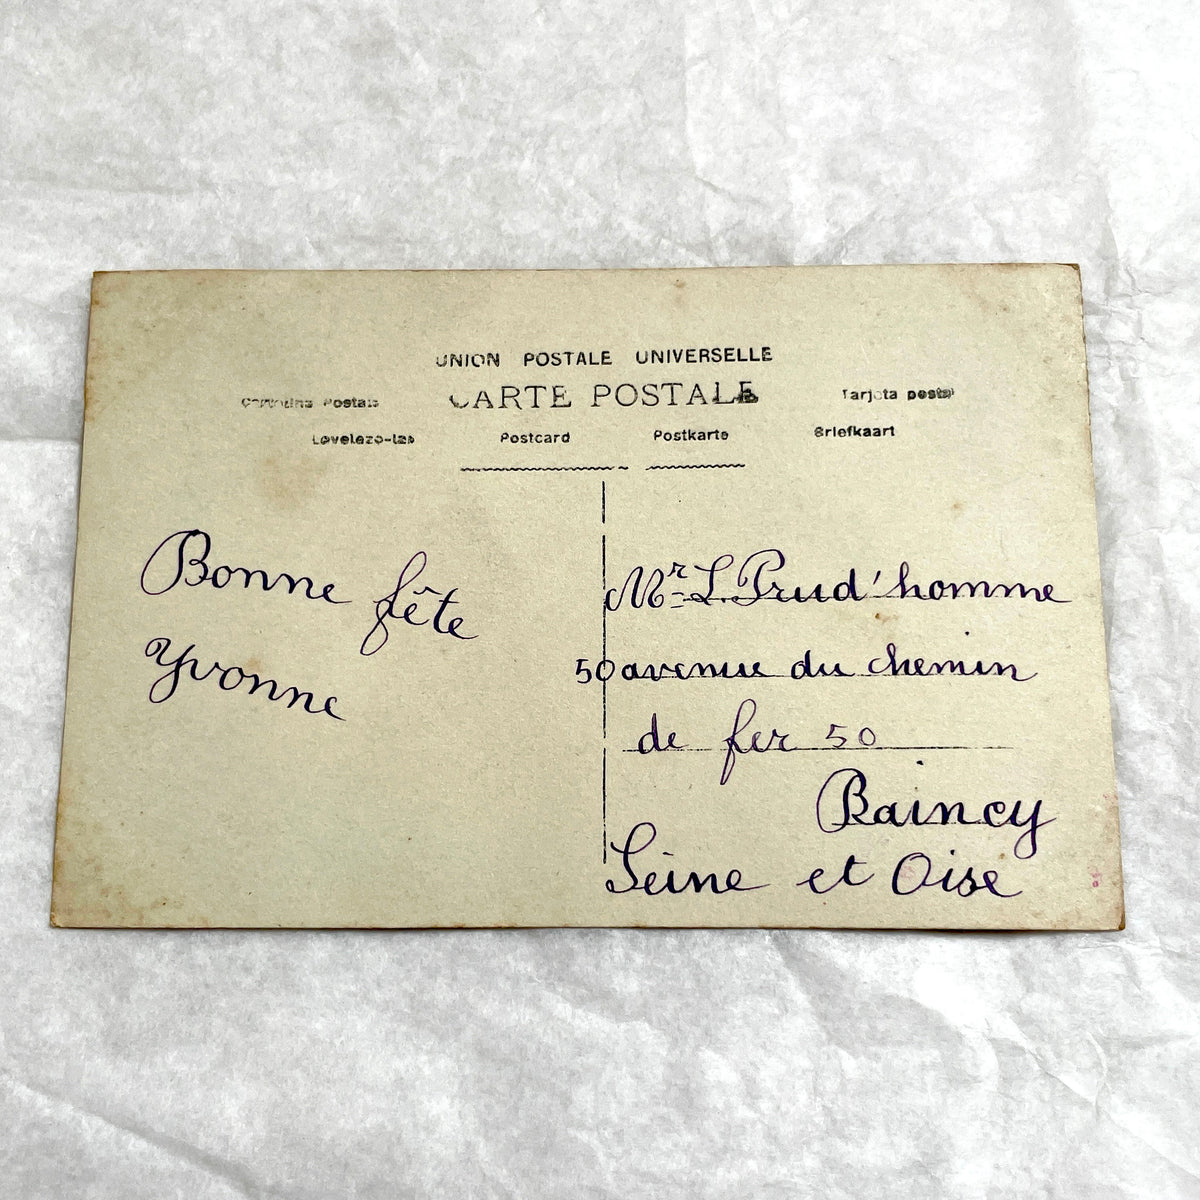 UNION POSTALE UNIVERSELLE
CARTE POSTALE
Postale Tarjeta postal
Levelezo-lap Postcard Postkarte Briefkaart
Bonne fête
Yvonne
Mr L. Prud'homme
50 avenue du chemin
de fer 50
Raincy
Seine et Oise